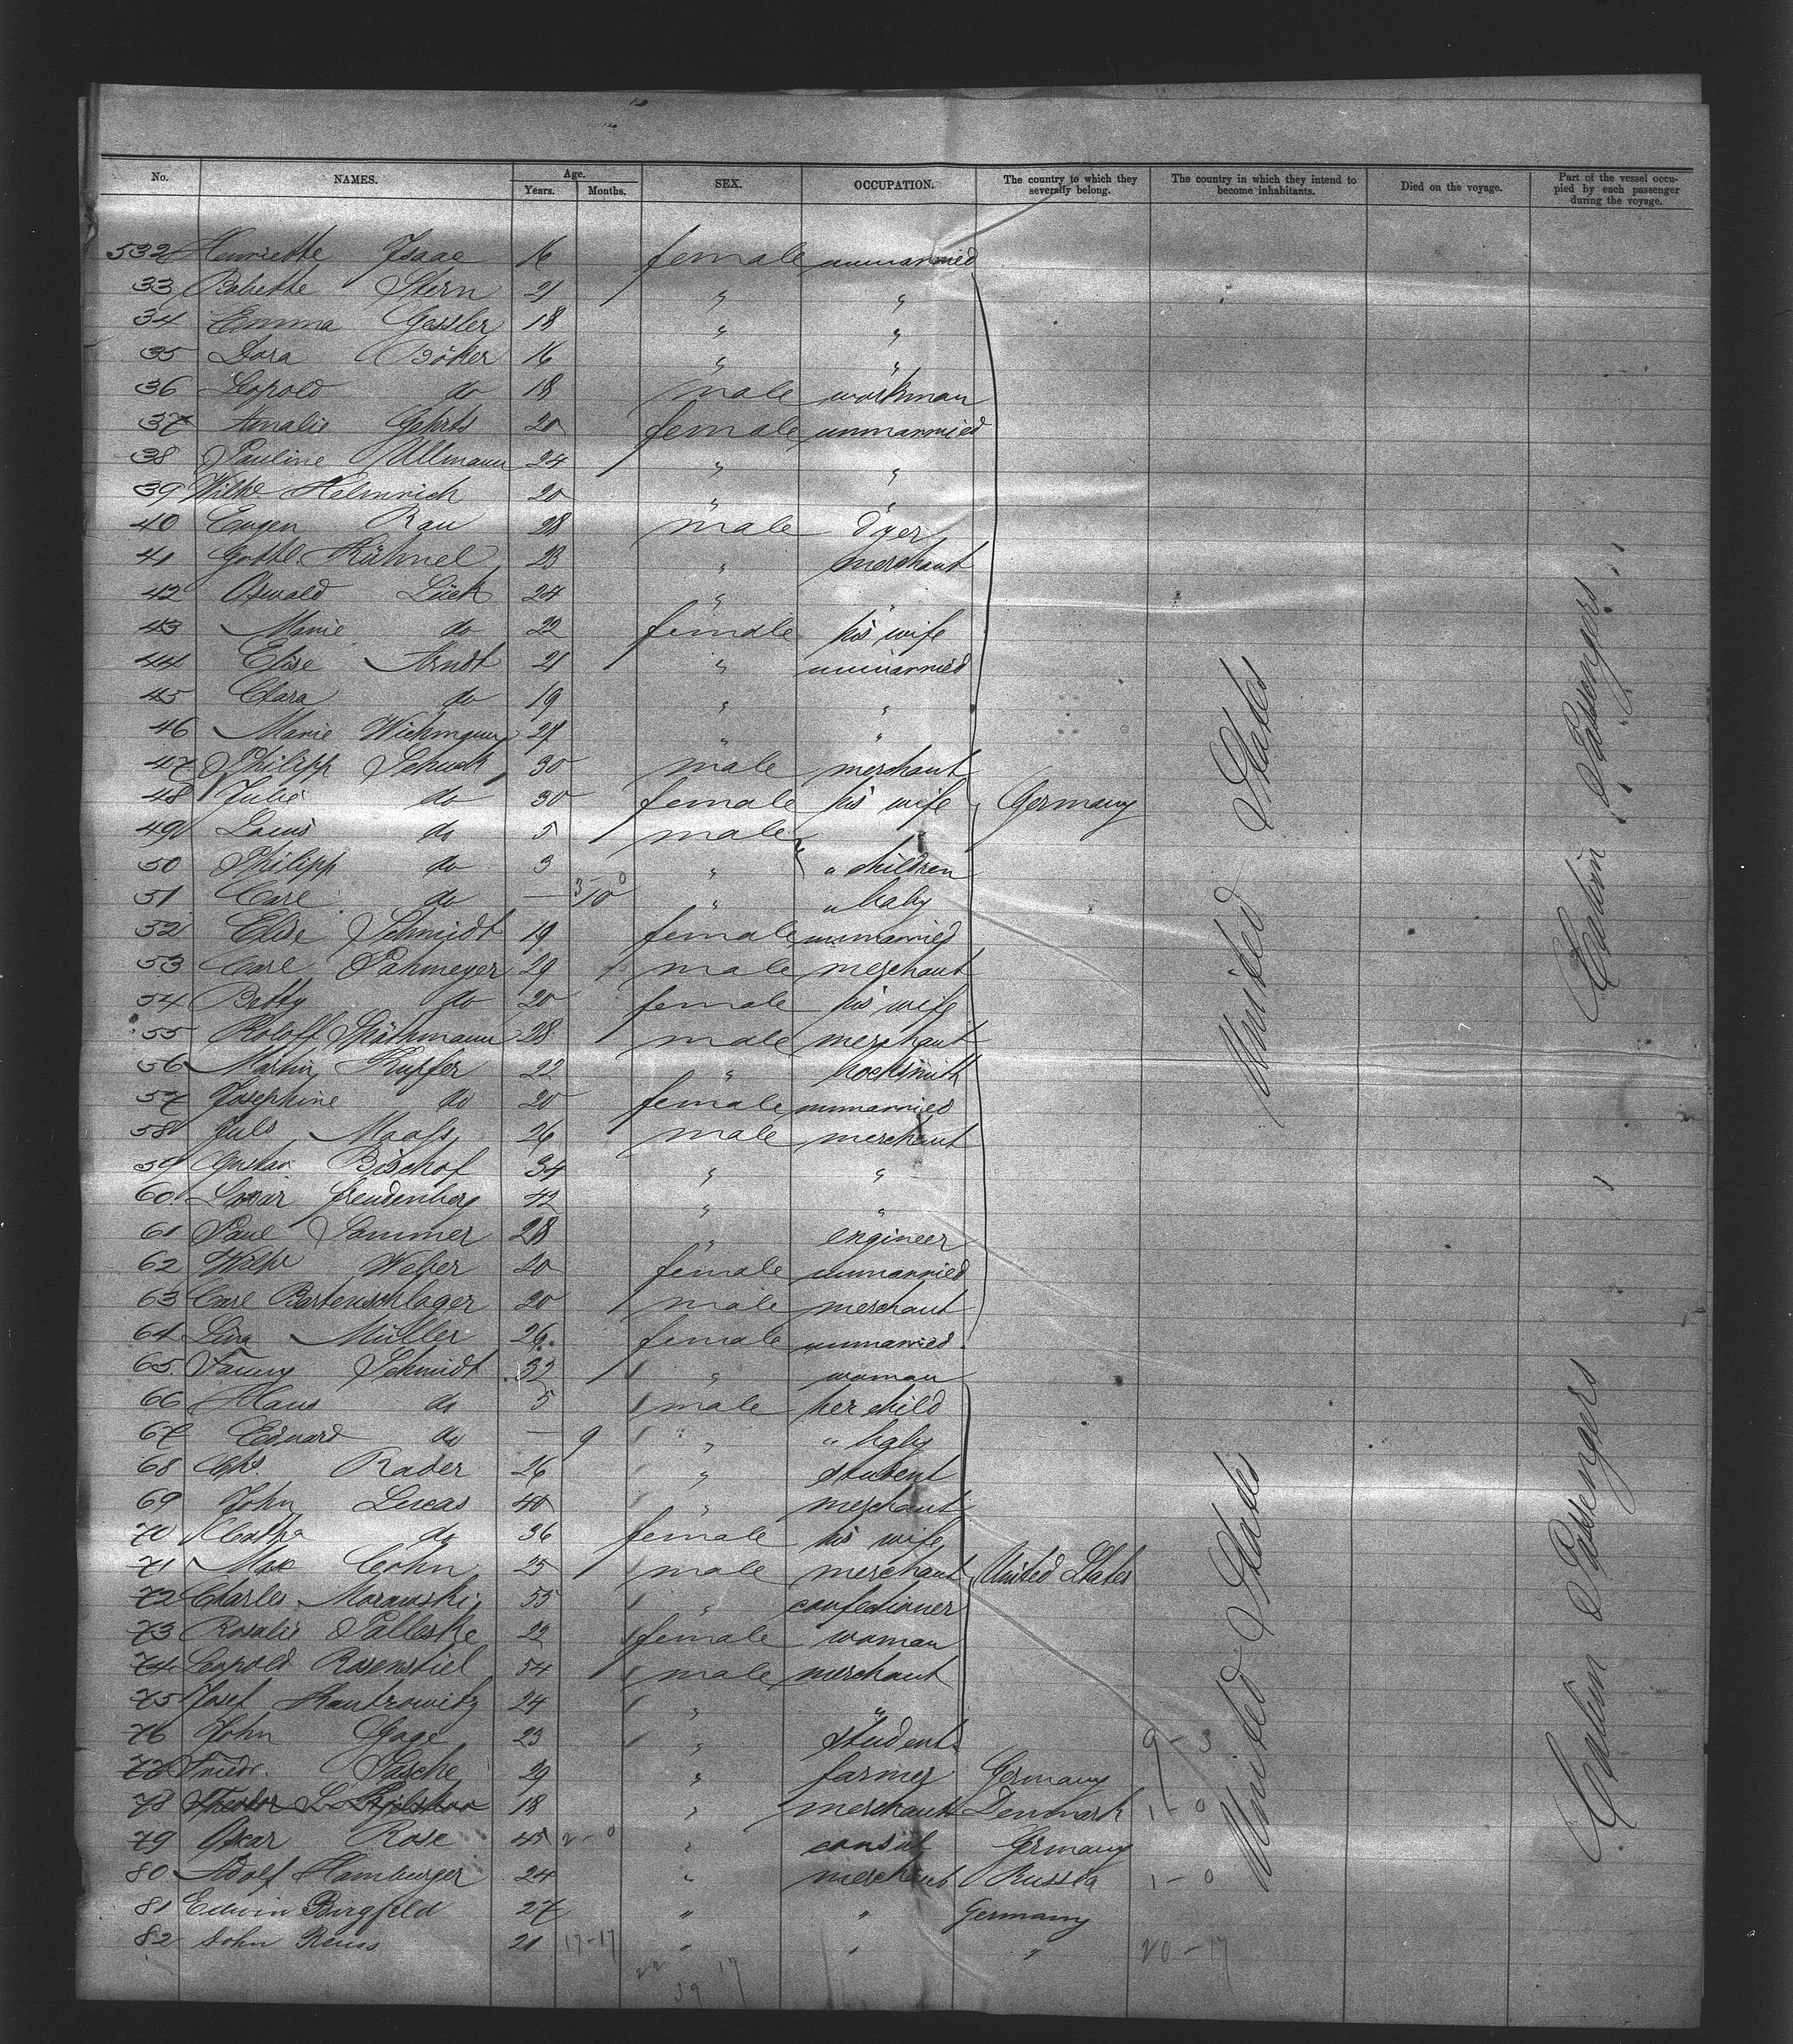 No. NAMES. Age. Years. Months. SEX. OCCUPATION. The country to which they severally belong. The country in which they intend to become inhabitants. Died on the voyage. Part of the vessel occupied by each passenger during the voyage.
532 Henriette Isaac 16 female unmarried
33 Babette Stern 21 " "
34 Emma Gessler 18 " "
35 Dora Böker 16 " "
36 Leopold do 18 male workman
37 Amalie Gehrts 20 female unmarried
38 Pauline Ullmann 24 " "
39 Wilhe Helmrich 20 " "
40 Eugen Rau 28 male dyer
41 Gottl. Kühnel 23 " merchant
42 Oswald Lück 24 " "
43 Marie do 22 female his wife
44 Elise Arndt 21 " unmarried
45 Clara do 19 " "
46 Marie Wichmann 29 " "
47 Philipp Schuck 30 male merchant
48 Julie do 30 female his wife Germany
49 Louis do 5 male
50 Philipp do 3 " " children
51 Carl do — 10 " " baby
52 Elise Schmidt 19 female unmarried
53 Carl Pahmeyer 29 male merchant
54 Betty do 20 female his wife
55 Roloff Späthmann 28 male merchant
56 Martin Kupfer 22 " locksmith
57 Josephine do 20 female unmarried
58 Juls Maass 26 male merchant
59 Gustav Bischof 34 " "
60 Freudenberg 42 " "
61 Paul Sommer 28 " engineer
62 Wilhe Weber 20 female unmarried
63 Carl Bartenschlager 20 male merchant
64 Lina Müller 26 female unmarried
65 Fanny Schmidt 32 " woman
66 Hans do 5 male her child
67 Eduard do — 9 " " baby
68 Chs. Rader 26 " student
69 John Lucas 40 " merchant
70 Bertha do 36 female his wife
71 Max Cohn 25 male merchant United States
72 Charles Morawski 55 " confectioner
73 Rosalie Palleske 22 female woman
74 Leopold Rosenstiel 54 male merchant
75 Josef Kantrowitz 24 " "
76 John Gage 23 " student 9-3
77 Friedr. Sasche 29 " farmer Germany
78 Theodor L. 18 " merchant Denmark 1-0
79 Oscar Rose 45 2-0 " consul Germany
80 Adolf Hamburger 24 " merchant Russia 1-0
81 Edwin Birgfeld 27 " " Germany
82 John Reuss 21 17-17 " " " 20-17
22 17
39 17
United States
United States
Cabin Passengers
Cabin Passengers